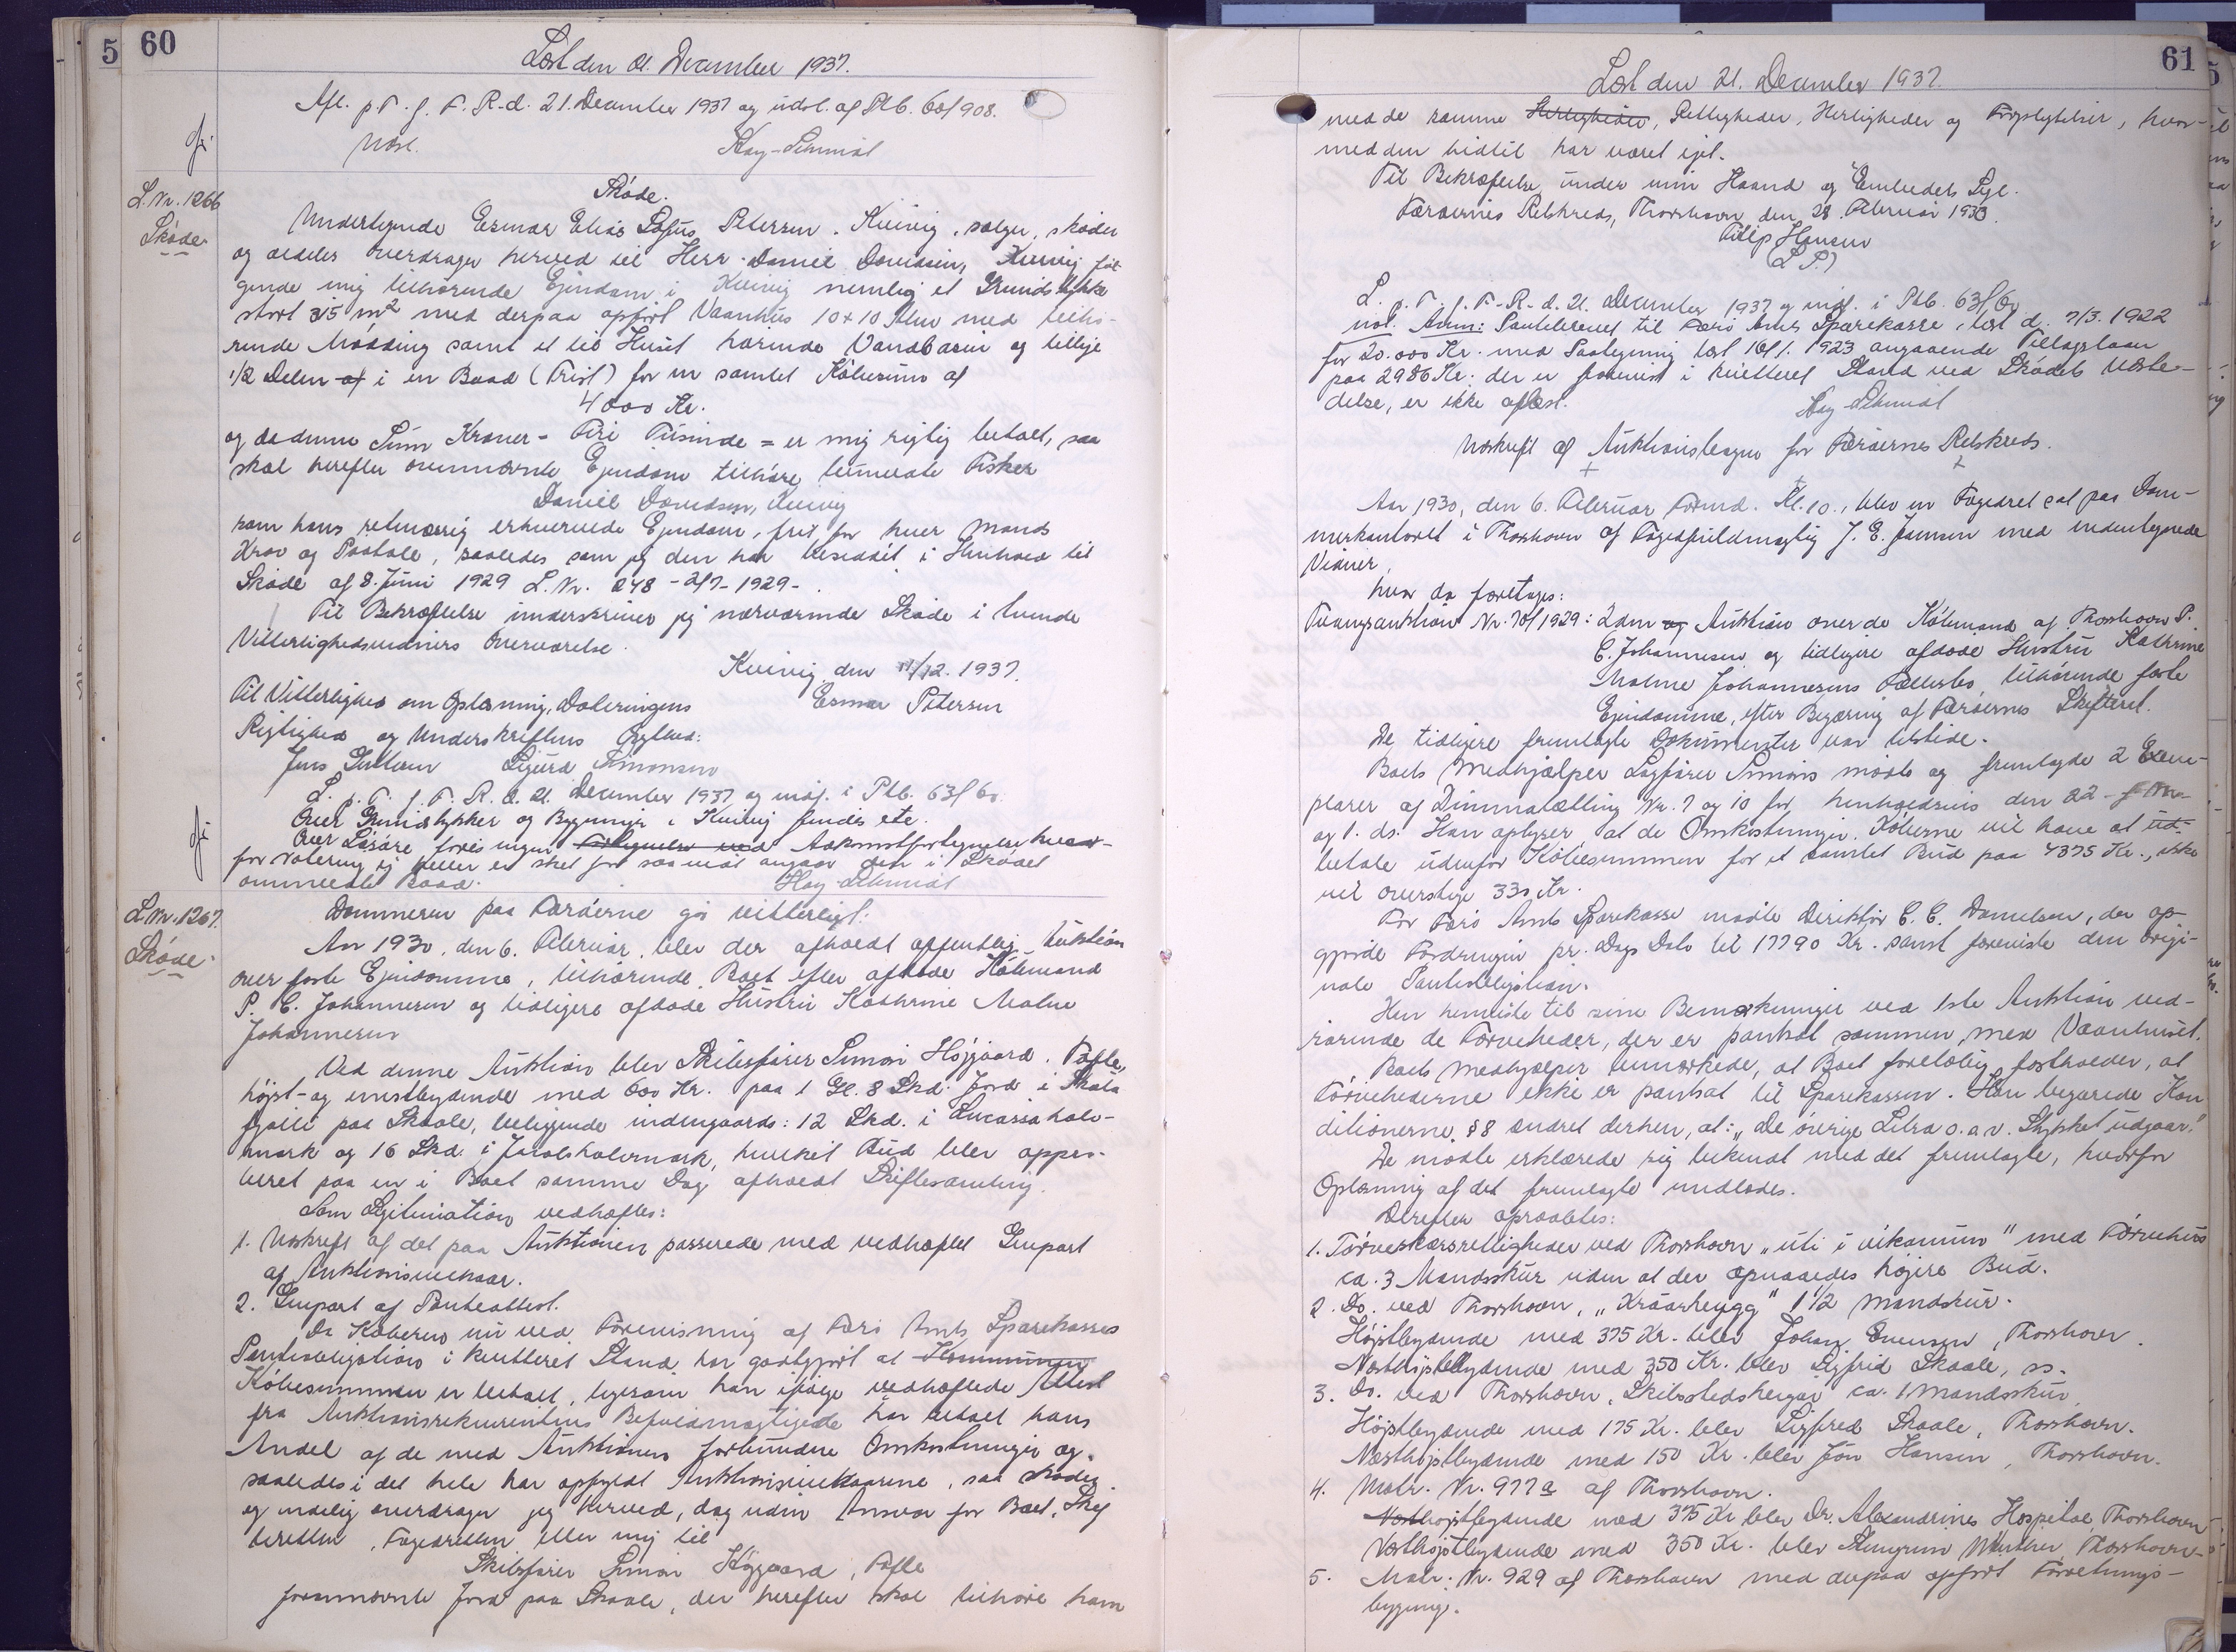 5 60
Læst den 21. December 1937.
Afl. p. T. f. F. R. d. 21. December 1937 og udsl. af Ptb. 60/908.
Kay-Schmidt
L. Nr. 1266
Skøde.
Skøde.
Undertegnede Esmar Elias Sofus Petersen, Kvivig, sælger, skøder
og aldeles overdrager herved til Herr Daniel Davidsen, Kvivig føl-
gende mig tilhørende Ejendom i Kvivig nemlig et Grundstykke
stort 315 m² med derpaa opført Vaanhus 10 x 10 Alen med tilhø-
rende Mødding samt et til Huset hørende Vandbasin og tillige
1/2 Delen af i en Baad (Trist) for en samlet Købesum af
4000 Kr.
og da denne Sum Kroner - Fire Tusinde = er mig rigtig betalt, saa
skal herefter ovennævnte Ejendom tilhøre bemeldte Fisker
Daniel Davidsen, Kvivig
som hans retmæssig erhvervede Ejendom, frit for hver Mands
Krav og Paatale, saaledes som jeg den har besiddet i Henhold til
Skøde af 8. Juni 1929 L. Nr. 248 - 2/7 - 1929 -
Til Bekræftelse underskriver jeg nærværende Skøde i tvende
Vitterlighedsvidners Overværelse.
Kvivig, den 11/12. 1937.
Til Vitterlighed om Oplæsning, Dateringens Esmar Petersen
Rigtighed og Underskriftens Ægthed:
Jens Sigurd Simonsen
L. p. T. f. F. R. d. 21. December 1937 og indf. i Ptb. 63/60.
Over Grundstykker og Bygninger i Kvivig findes etc.
Over Løsøre føres ingen Adkomstfortegnelse hvor-
for Notering ej heller er sket for saavidt angaar den i Skødet
ommeldte Baad. Kay-Schmidt
L. Nr. 1267.
Skøde.
Dommeren paa Færøerne gør vitterligt:
Aar 1930, den 6. Februar, blev der afholdt offentlig Auktion
over faste Ejendomme, tilhørende Boet efter afdøde Købmand
P. C. Johannesen og tidligere afdøde Hustru Kathrine Malne
Johannesen
Ved denne Auktion blev Skibsfører Simon Højgaard, Tofte,
højst- og enestbydende med 600 Kr. paa 1 Gl. 8 Skd. Jord i Skala
fjalli paa Skaale, beliggende indengaards: 12 Skd. i Lucassa hale-
mark og 16 Skd. i Jacobshalemark, hvilket Bud blev appro-
beret paa en i Boet samme Dag afholdt Skiftesamling.
Som Legitimation vedhæftes:
1. Udskrift af det paa Auktionen passerede med vedhæftet Genpart
af Auktionsvilkaar.
2. Genpart af Panteattest.
Da Køberen nu ved Forevisning af Færø Amts Sparekasses
Panteobligation i kvitteret Stand har godtgjort at Kommunen
Købesummen er betalt, ligesom han ifølge vedhæftede Attest
fra Auktionsrekvirentens Befuldmægtigede har betalt hans
Andel af de med Auktionen forbundne Omkostninger og
saaledes i det hele har opfyldt Auktionsvilkaarene, saa skøder
og endelig overdrager jeg herved, dog uden Ansvar for Boet, Skif
teretten, Fogedretten eller mig til
Skibsfører Simon Højgaard, Tofte
forannævnte Jord paa Skaale, der herefter skal tilhøre ham
61
Læst den 21. December 1937.
med de samme Herligheder, Rettigheder, Herligheder og Forpligtelser, hvor-
med den hidtil har været ejet.
Til Bekræftelse under min Haand og Embedets Segl.
Færøernes Retskreds, Thorshavn, den 28. Februar 1930.
Filip Hansen
(L. S.)
L. p. T. f. F. R. d. 21. December 1937 og indf. i Ptb. 63/60
Anm: Pantebrevet til Færø Amts Sparekasse, læst d. 7/3. 1922
for 20.000 Kr. med Paategning læst 10/1. 1923 angaaende Tillægslaan
paa 2986 Kr. der er forevist i kvitteret Stand ved Skødets Udste-
delse, er ikke aflæst. Kay-Schmidt
Udskrift af Auktionsbogen for Færøernes Retskreds.
Aar 1930, den 6. Februar Formd. Kl. 10., blev en Fogedret sat paa Dom-
merkontoret i Thorshavn af Fogedfuldmægtig J. E. Jamsen med undertegnede
Vidner,
hvor da foretoges:
Tvangsauktion Nr. 70/1929: 2den og Auktion over de Købmand af Thorshavn P.
C. Johannesen og tidligere afdøde Hustru Kathrine
Malne Johannesens Fællesbo tilhørende faste
Ejendomme, efter Begæring af Færøernes Skifteret.
De tidligere fremlagte Dokumenter var tilstede.
Boets Medhjælper Sagfører Simonis mødte og fremlagde 2 Exem-
plarer af Dimmalætting Nr. 7 og 10 for henholdsvis den 22 - f. M.
og 1. ds. Han oplyser at de Omkostninger, Køberne vil have at ud-
betale udenfor Købesummen for et samlet Bud paa 4375 Kr., ikke
vil overstige 330 Kr.
For Færø Amts Sparekasse mødte Direktør C. C. Danielsen, der op-
gjorde Fordringen pr. Dags Dato til 17790 Kr. samt foreviste den origi-
nale Panteobligation.
Han henviste til sine Bemærkninger ved 1ste Auktion ved-
rørende de Tørveheder, der er pantsat sammen med Vaanhuset.
Boets Medhjælper bemærkede, at Boet foreløbig fastholder, at
Tørvehederne ikke er pantsat til Sparekassen. Han begærede Kon
ditionerne § 8 ændret derhen, at: "De øvrige Litra o.a.v. Stykket udgaar."
De mødte erklærede sig bekendt med det fremlagte, hvorfor
Oplæsning af det fremlagte undlodes.
Derefter opraabtes:
1. Tørveskærsrettigheder ved Thorshavn "uti i vikanum" med Tørvehus
ca. 3 Mandsskur uden at der opnaaedes højere Bud.
2. Do. ved Thorshavn, "Kráarheygg" 1 1/2 Mandskur.
Højstbydende med 375 Kr. blev Johan Evensen, Thorshavn.
Næsthøjstbydende med 350 Kr. blev Sigfrid Skaale, ss.
3. Do. ved Thorshavn, Skibsstedsheygar ca. 1 Mandsskur
Højstbydende med 175 Kr. blev Sigfred Skaale, Thorshavn.
Næsthøjstbydende med 150 Kr. blev Jón Hansen, Thorshavn.
4. Matr. Nr. 977 a af Thorshavn.
Næsthøjstbydende med 375 Kr. blev Dr. Alexandrines Hospital, Thorshavn
Næsthøjstbydende med 350 Kr. blev Winther, Thorshavn
5. Matr. Nr. 929 af Thorshavn med derpaa opført Forretnings-
bygning.